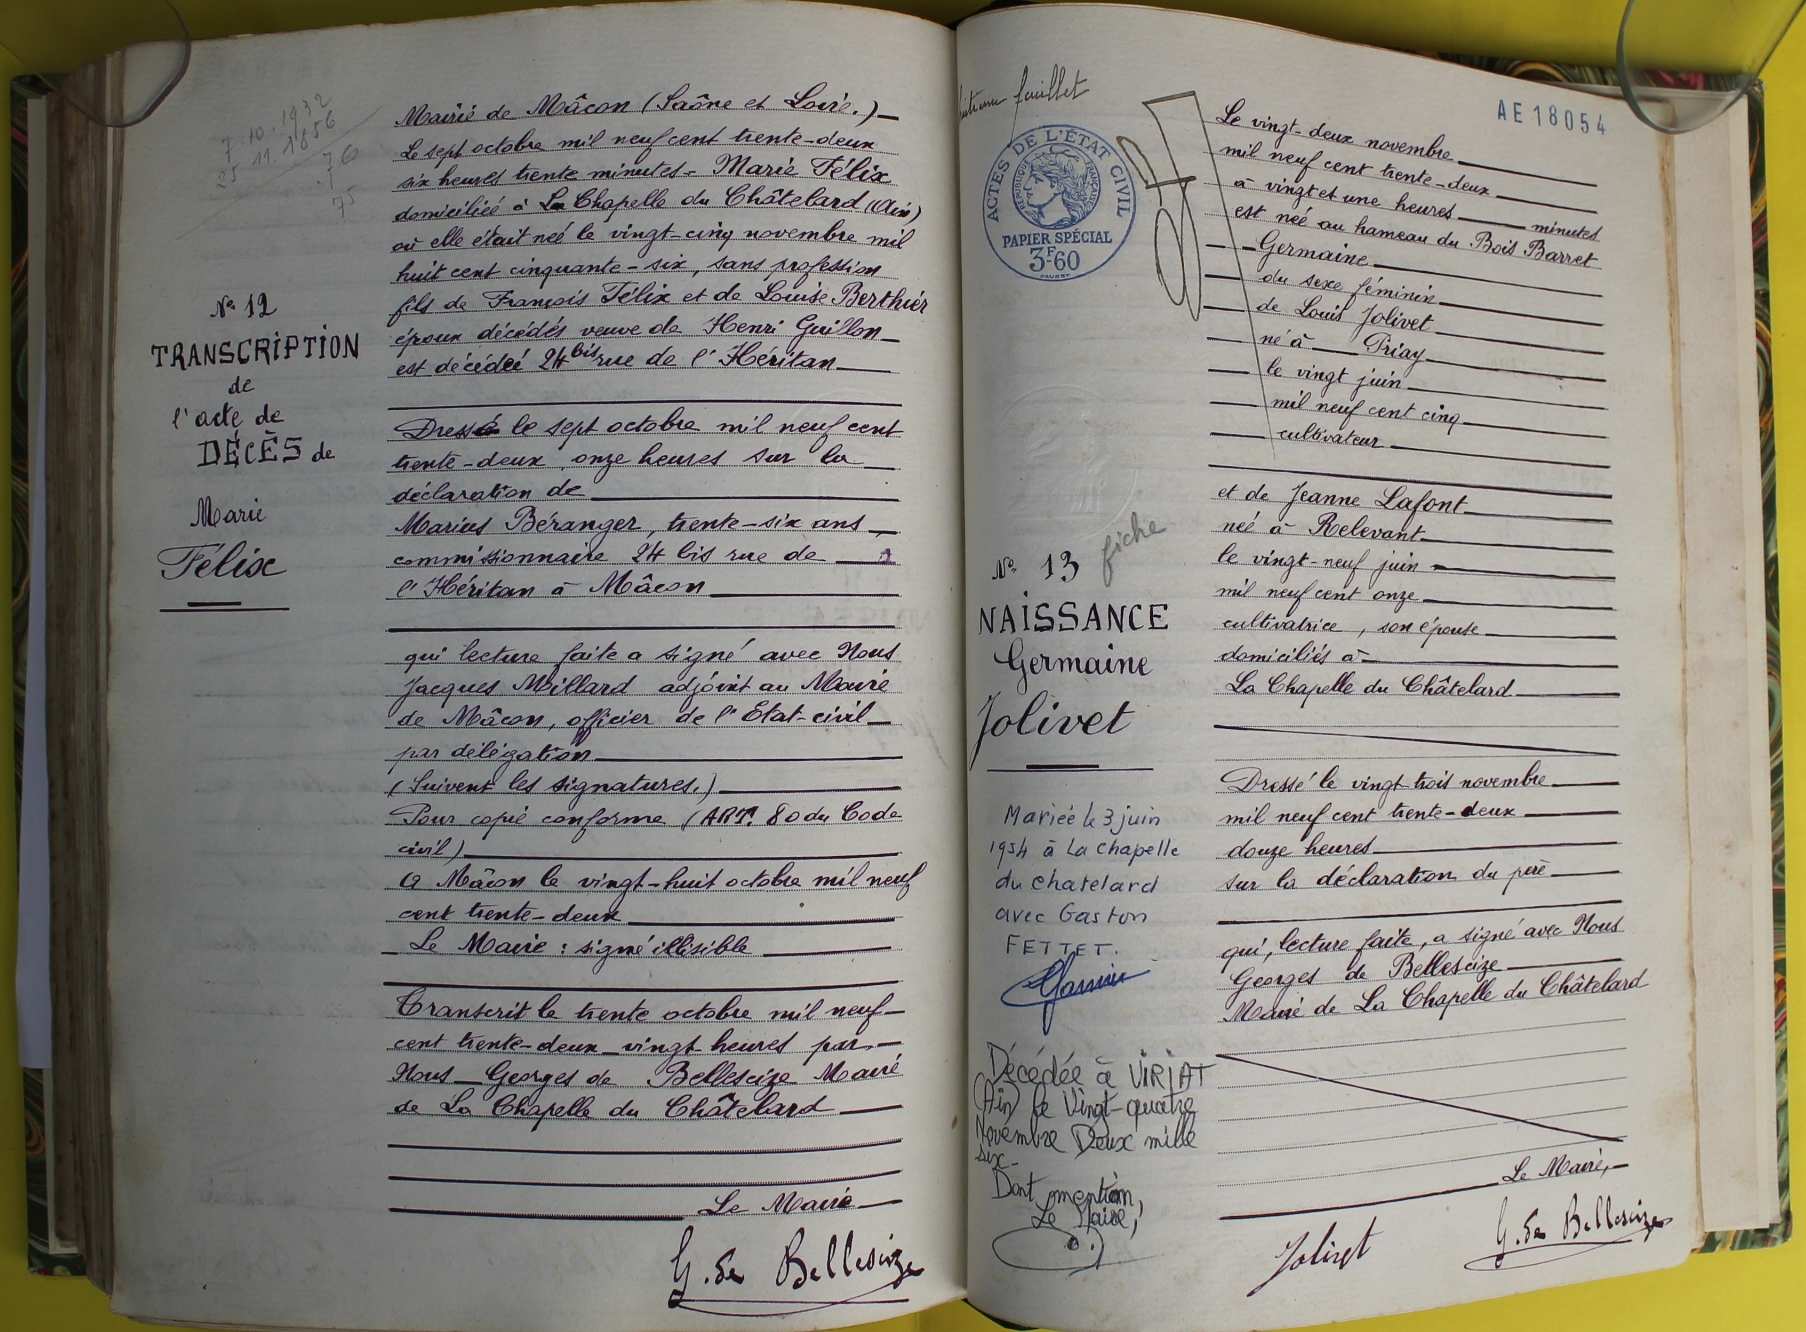 7.10.1932
25 11.1856
76
75
No 12
TRANSCRIPTION
de
l'acte de
DÉCÈS de
Marie
Félix
Mairie de Mâcon (Saône et Loire.)
Le sept octobre mil neuf cent trente-deux
six heures trente minutes - Marie Félix
domiciliée à La Chapelle du Châtelard (Ain)
où elle était née le vingt-cinq novembre mil
huit cent cinquante-six, sans profession
fils de François Félix et de Louise Berthier
époux décédés veuve de Henri Guillon
est décédée 24 bis rue de l'Héritan
Dressé le sept octobre mil neuf cent
trente-deux, onze heures sur la
déclaration de
Marius Béranger, trente-six ans,
commissionnaire 24 bis rue de
l'Héritan à Mâcon
qui lecture faite a signé avec Nous
Jacques Millard adjoint au Maire
de Mâcon, officier de l'Etat-civil
par délégation
(Suivent les signatures.)
Pour copie conforme (ART. 80 du Code
civil)
A Mâcon le vingt-huit octobre mil neuf
cent trente-deux
Le Maire : signé illisible
Transcrit le trente octobre mil neuf
cent trente-deux vingt heures par
Nous Georges de Bellescize Maire
de La Chapelle du Châtelard
Le Maire
G. de Bellescize
feuillet
ACTES DE L'ÉTAT CIVIL
RÉPUBLIQUE FRANÇAISE
PAPIER SPÉCIAL
3F60
AE18054
No 13
fiche
NAISSANCE
Germaine
Jolivet
Mariée le 3 juin
1954 à La Chapelle
du Chatelard
avec Gaston
FETTET.
Décédée à VIRIAT
(Ain) le Vingt-quatre
Novembre Deux mille
six-
Dont mention,
Le Maire,
Le vingt-deux novembre
mil neuf cent trente-deux
à vingt et une heures minutes
est née au hameau du Bois Barret
Germaine
du sexe féminin
de Louis Jolivet
né à Priay
le vingt juin
mil neuf cent cinq
cultivateur
et de Jeanne Lafont
née à Relevant
le vingt-neuf juin
mil neuf cent onze
cultivatrice, son épouse
domiciliés à
La Chapelle du Châtelard
Dressé le vingt-trois novembre
mil neuf cent trente-deux
douze heures
sur la déclaration du père
qui, lecture faite, a signé avec Nous
Georges de Bellescize
Maire de La Chapelle du Châtelard
Le Maire,
Jolivet
G. de Bellescize